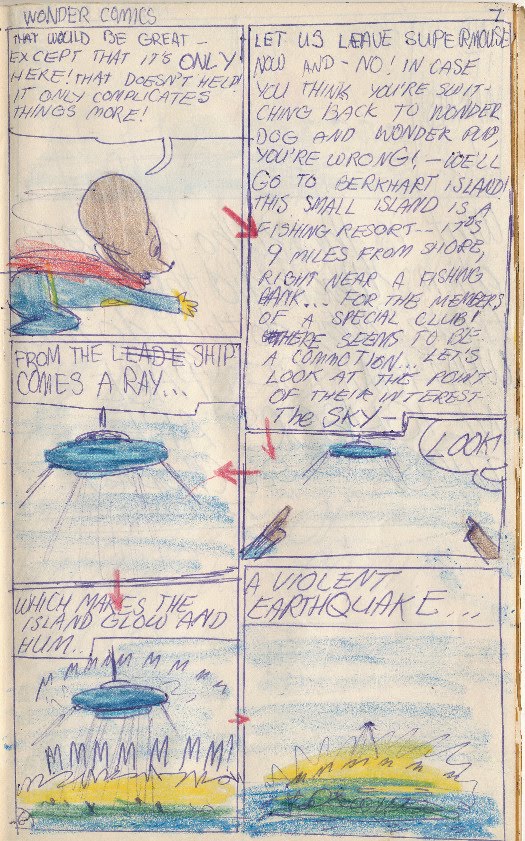 WONDER COMICS
7
THAT WOULD BE GREAT —
EXCEPT THAT IT'S ONLY
HERE! THAT DOESN'T HELP!
IT ONLY COMPLICATES
THINGS MORE!
LET US LEAVE SUPERMOUSE
NOW AND - NO! IN CASE
YOU THINK YOU'RE SWIT-
CHING BACK TO WONDER
DOG AND WONDER PUP,
YOU'RE WRONG! — WE'LL
GO TO BERKHART ISLAND!
THIS SMALL ISLAND IS A
FISHING RESORT -- IT'S
9 MILES FROM SHORE,
RIGHT NEAR A FISHING
BANK... FOR THE MEMBERS
OF A SPECIAL CLUB!
THERE SEEMS TO BE
A COMMOTION... LET'S
LOOK AT THE POINT
OF THEIR INTEREST
The SKY —
LOOK!
FROM THE LEADE SHIP
COMES A RAY...
WHICH MAKES THE
ISLAND GLOW AND
HUM...
M M M M M M M M
M M M M M M M M!
A VIOLENT
EARTHQUAKE...